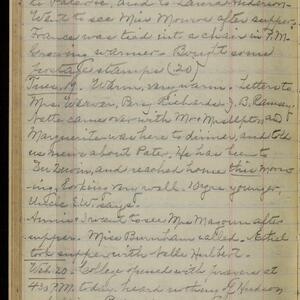 to Patons, and to Laura Anderson.
Went to see Mrs Monroe after supper.
Frances was tied in a chair in P.M.
Growing warmer. Bought some
postage stamps (20)
Tues. 19. Warm, very warm. Letters to
Mrs. Warver, Benj. Richards, J. B. Ramsey.
came over with Mr. and
Marguerite was here to dinner, and told
us more about Pater. He has been to
and reached home this morn-
ing, looking very well. 10 yrs younger,
Uncle E.W. says.
Annie & I went to see Mrs Magoun after
supper. Miss Burnham called. Ethel
took supper with Hulbert.
Wed. 20. College opened with prayers at
4.30 P.M. today. heard nothing. E. Hudson